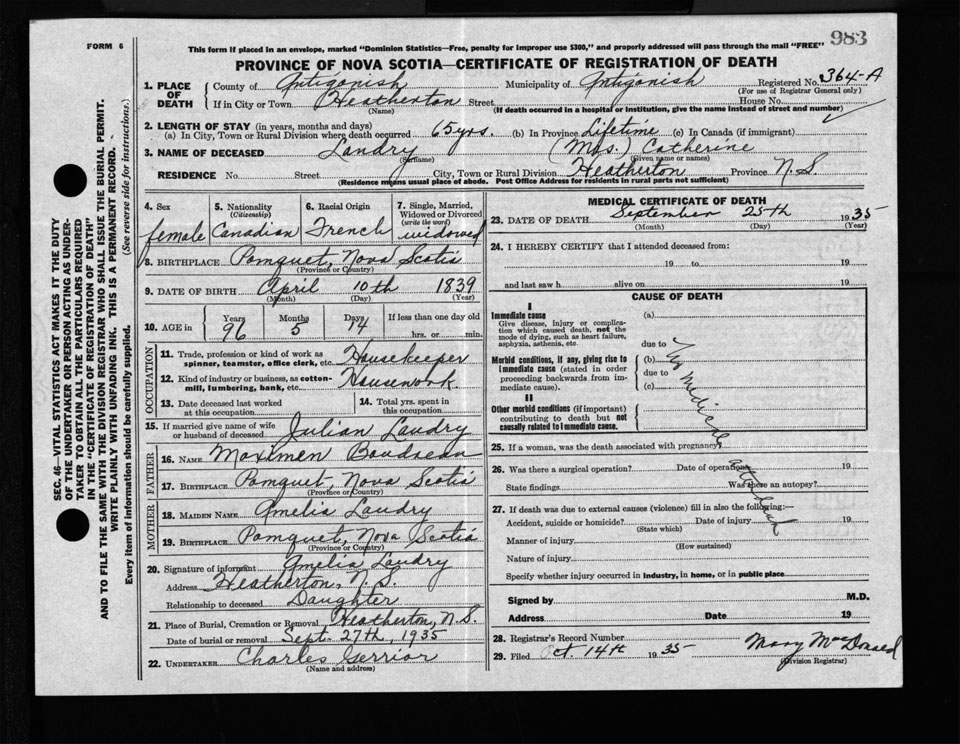 983
FORM 6
This form if placed in an envelope, marked "Dominion Statistics—Free, penalty for improper use $300," and properly addressed will pass through the mail "FREE"
PROVINCE OF NOVA SCOTIA—CERTIFICATE OF REGISTRATION OF DEATH
SEC. 46—VITAL STATISTICS ACT MAKES IT THE DUTY
OF THE UNDERTAKER OR PERSON ACTING AS UNDER-
TAKER TO OBTAIN ALL THE PARTICULARS REQUIRED
IN THE "CERTIFICATE OF REGISTRATION OF DEATH"
AND TO FILE THE SAME WITH THE DIVISION REGISTRAR WHO SHALL ISSUE THE BURIAL PERMIT.
WRITE PLAINLY WITH UNFADING INK. THIS IS A PERMANENT RECORD.
Every item of information should be carefully supplied. (See reverse side for instructions.)
1. PLACE OF DEATH
County of Antigonish Municipality of Antigonish Registered No. 364-A
(For use of Registrar General only)
If in City or Town Heatherton Street House No.
(Name) (If death occurred in a hospital or institution, give the name instead of street and number)
2. LENGTH OF STAY (in years, months and days)
(a) In City, Town or Rural Division where death occurred 65 yrs. (b) In Province Lifetime (c) In Canada (if immigrant)
3. NAME OF DECEASED Landry (Mrs.) Catherine
(Surname) (Given name or names)
RESIDENCE No Street City, Town or Rural Division Heatherton Province N.S.
(Residence means usual place of abode. Post Office Address for residents in rural parts not sufficient)
4. Sex female
5. Nationality (Citizenship) Canadian
6. Racial Origin French
7. Single, Married, Widowed or Divorced (write the word) widowed
8. BIRTHPLACE Pomquet, Nova Scotia
(Province or Country)
9. DATE OF BIRTH April 10th 1839
(Month) (Day) (Year)
10. AGE in Years 96 Months 5 Days 14 If less than one day old
hrs. or min.
OCCUPATION
11. Trade, profession or kind of work as spinner, teamster, office clerk, etc. Housekeeper
12. Kind of industry or business, as cotton-mill, lumbering, bank, etc. Housework
13. Date deceased last worked at this occupation
14. Total yrs. spent in this occupation
15. If married give name of wife or husband of deceased Julian Landry
FATHER
16. NAME Maximen Boudreau
17. BIRTHPLACE Pomquet, Nova Scotia
(Province or Country)
MOTHER
18. MAIDEN NAME Amelia Landry
19. BIRTHPLACE Pomquet, Nova Scotia
(Province or Country)
20. Signature of informant Amelia Landry
Address Heatherton, N.S.
Relationship to deceased Daughter
21. Place of Burial, Cremation or Removal Heatherton, N.S.
Date of burial or removal Sept. 27th, 1935
22. UNDERTAKER Charles Gerrior
(Name and address)
MEDICAL CERTIFICATE OF DEATH
23. DATE OF DEATH September 25th 1935
(Month) (Day) (Year)
24. I HEREBY CERTIFY that I attended deceased from:
19 to 19
and last saw h alive on 19
CAUSE OF DEATH
I
Immediate cause
Give disease, injury or complication which caused death, not the mode of dying, such as heart failure, asphyxia, asthenia, etc.
(a)
due to
Morbid conditions, if any, giving rise to immediate cause (stated in order proceeding backwards from immediate cause).
(b)
due to
(c)
II
Other morbid conditions (if important) contributing to death but not causally related to immediate cause.
No Medical
25. If a woman, was the death associated with pregnancy
26. Was there a surgical operation? Date of operation 19
State findings Was there an autopsy?
27. If death was due to external causes (violence) fill in also the following:—
Accident, suicide or homicide? Date of injury 19
(State which)
Manner of injury
(How sustained)
Nature of injury
Specify whether injury occurred in industry, in home, or in public place
Signed by M.D.
Address Date 19
28. Registrar's Record Number
29. Filed Oct. 14th 1935 Mary MacDonald
(Division Registrar)